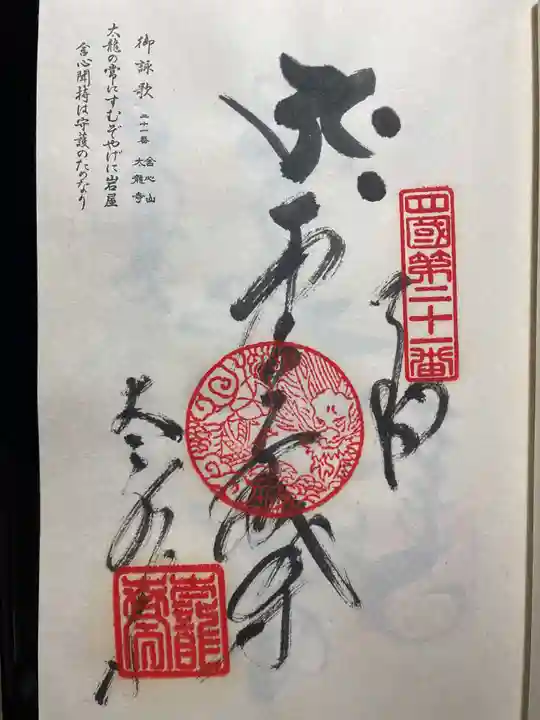 四國第二十一番
奉拝
虚空蔵尊
太龍寺
御詠歌 二十一番 舎心山 太龍寺
太龍の常にすむぞやげに岩屋
舎心聞持は守護のためなり